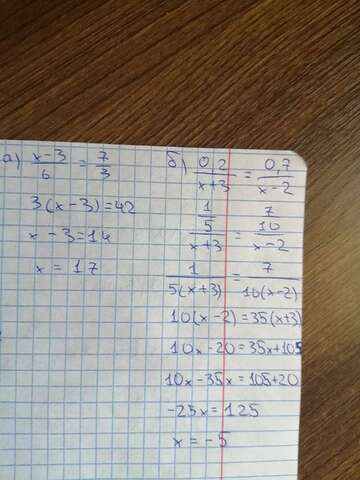 а) (x-3)/6 = 7/3
3(x-3)=42
x-3=14
x = 17
б) 0,2/(x+3) = 0,7/(x-2)
(1/5)/(x+3) = (7/10)/(x-2)
1/(5(x+3)) = 7/(10(x-2))
10(x-2)=35(x+3)
10x-20=35x+105
10x-35x=105+20
-25x=125
x=-5